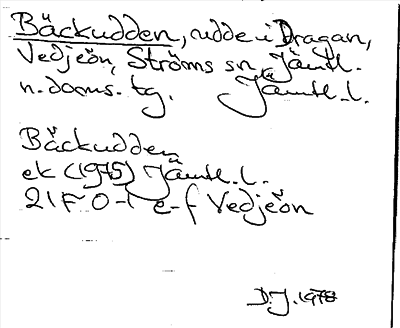 Bäckudden, udde i Dragan,
Vedjeön, Ströms sn, Jämtl.
n. doms. tg. Jämtl. l.
Bäckudden
ek (1975) Jämtl. l.
21F 0-1 e-f Vedjeön
D.J. 1978